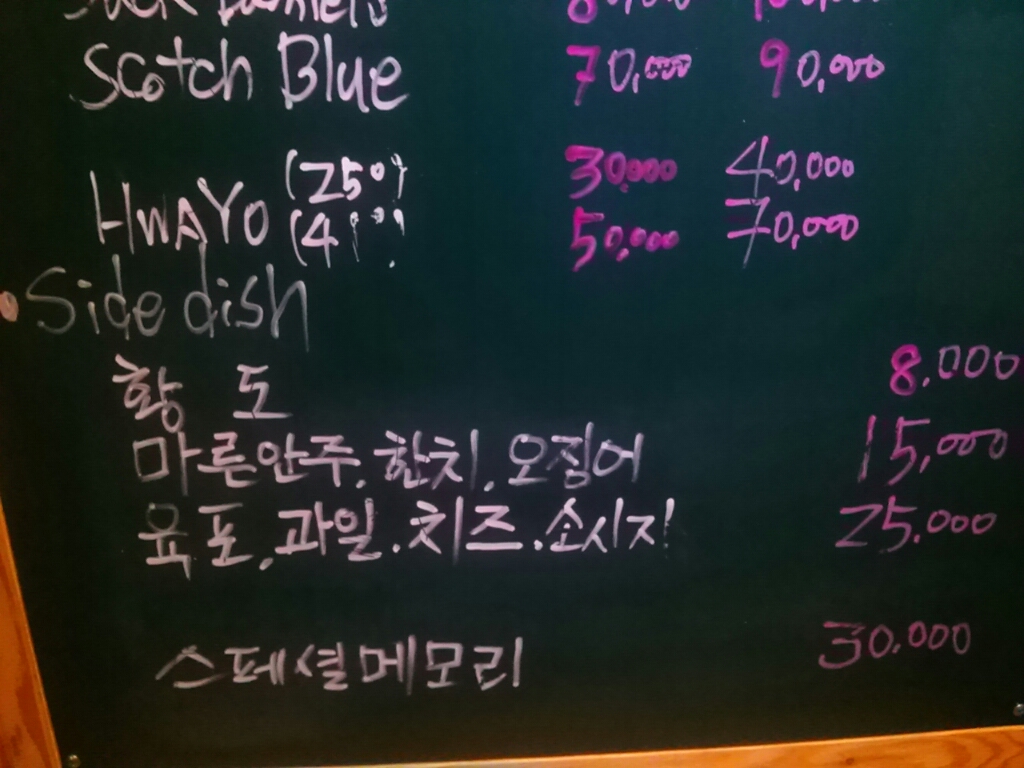 Scotch Blue 70,000 90,000
(25°) 30,000 40,000
HWAYO (41°) 50,000 70,000
Side dish
황 도 8.000
마른안주, 한치, 오징어 15,000
육포, 과일. 치즈. 소시지 25.000
스페셜메모리 30.000